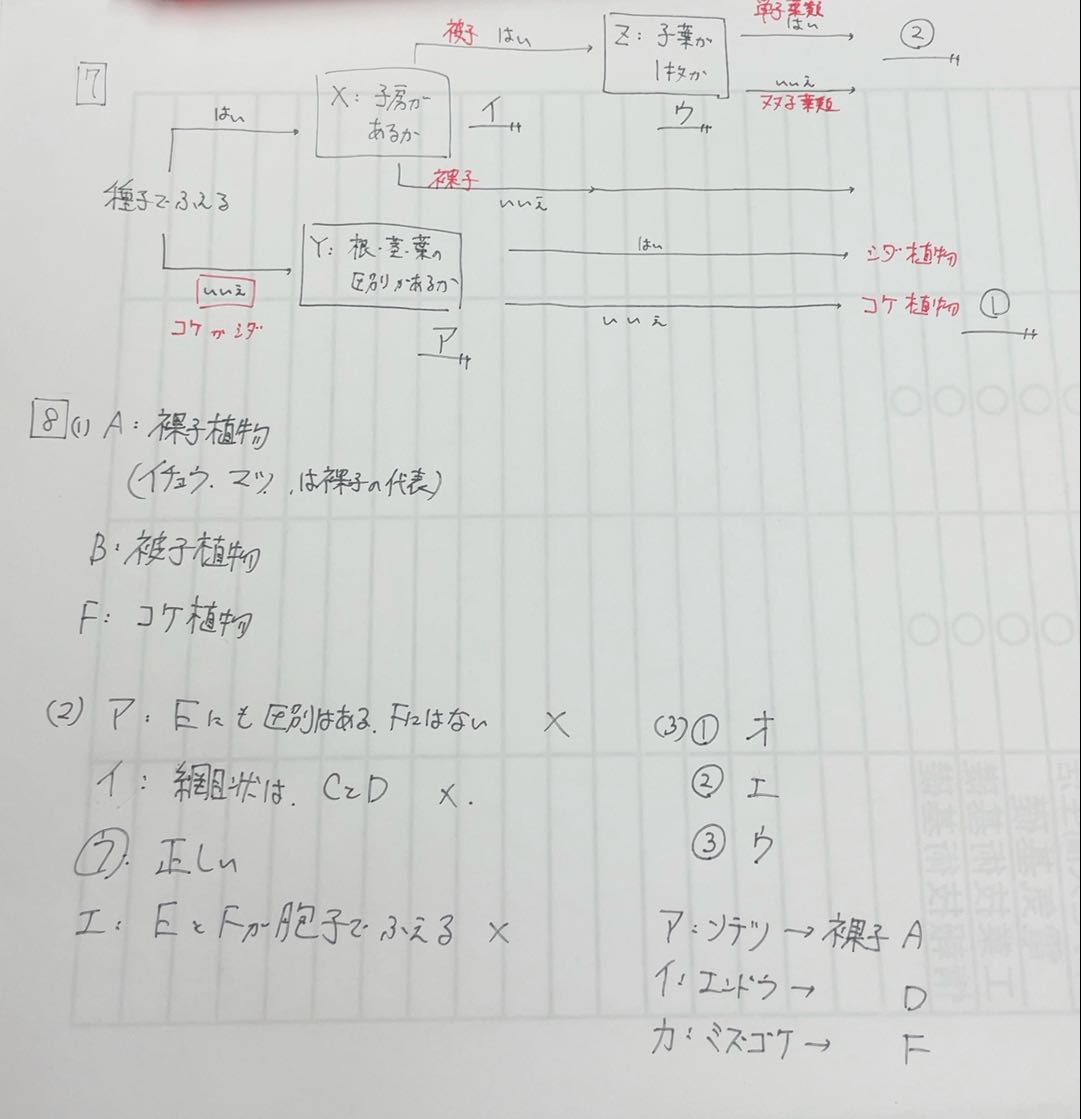 7
種子でふえる
はい
X: 子房が
あるか
イ
被子 はい
Z: 子葉が
1枚か
ウ
単子葉類
はい
②
いいえ
双子葉類
裸子
いいえ
いいえ
コケかシダ
Y: 根・茎・葉の
区別があるか
ア
はい
シダ植物
いいえ
コケ植物 ①
8 (1) A: 裸子植物
(イチョウ、マツ、は裸子の代表)
B: 被子植物
F: コケ植物
(2) ア: Eにも区別はある、Fにはない ×
イ: 網目状は、CとD ×.
ウ. 正しい
エ: EとFが胞子でふえる ×
(3)① オ
② エ
③ ウ
ア: ソテツ → 裸子 A
イ: エンドウ → D
カ: ミズゴケ → F